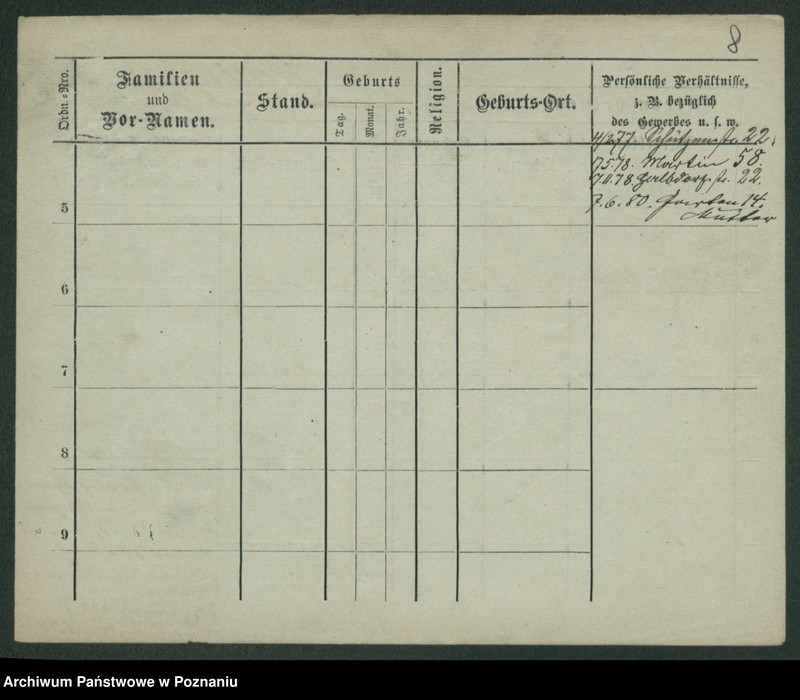 8
Ordn.-Nro.
Familien
und
Vor-Namen.
Stand.
Geburts
Tag.
Monat.
Jahr.
Religion.
Geburts-Ort.
Persönliche Verhältnisse,
z. B. bezüglich
des Gewerbes u. s. w.
77. Schützenstr. 22.
7.5.78. Martin 58.
7.11.78. Halbdorfstr. 22.
7.6.80. Garten 14.
Mutter
5
6
7
8
9
Archiwum Państwowe w Poznaniu